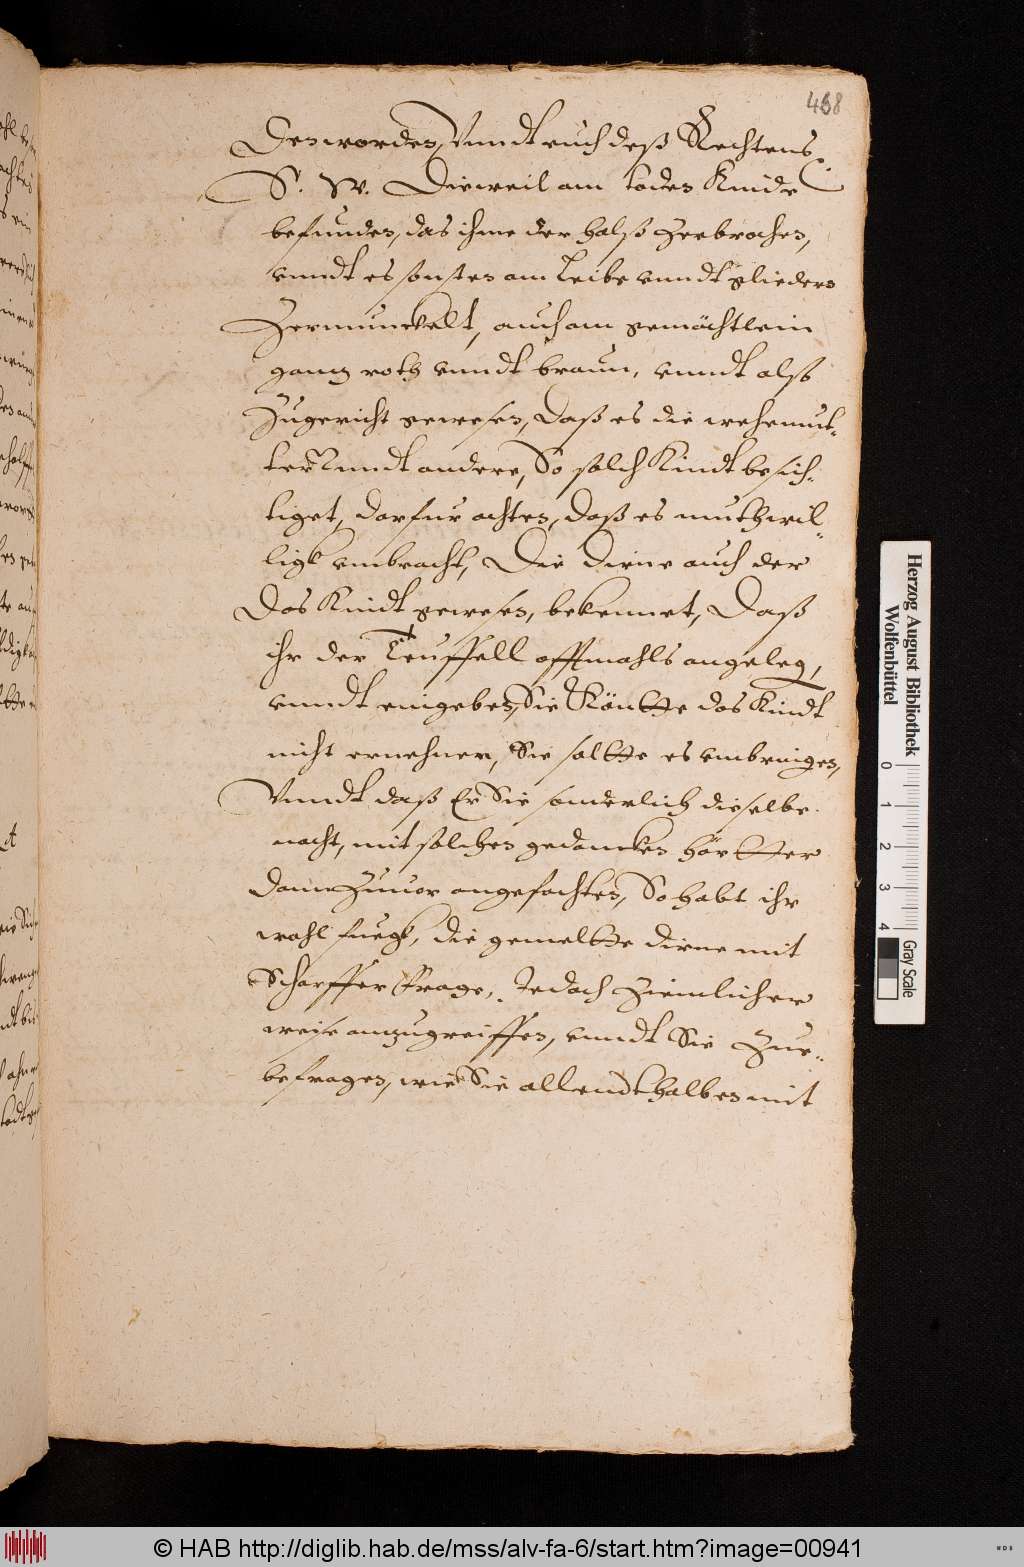 468
den worden, Vnndt euch deß Rechtens
S. W. Dieweil am todten Kinde
befunden, das ihme der halß zerbrochen,
vnndt es sonsten am Leibe vnndt gliedern
Zermunckelt, auch am gemächtlein
gantz roth vnndt braun, vnndt alß
Zugericht gewesen, Daß es die wehemut-
ter Vnndt andere, So solch Kindt besich-
tiget, darfur achten, daß es muthwil-
ligk vmbracht, Die dirne auch der
das Kindt gewesen, bekennet, Daß
ihr der Teuffell offtmahls angeleg,
vnndt eingeben, Sie Köntte das Kindt
nicht ernehren, Sie soltte es vmbringen,
Vnndt daß Er Sie sonderlich dieselbe
nacht, mit solchen gedancken härtter
dann Zuuor angefochten, So habt ihr
wohl fuegk, die gemeltte dirne mit
Scharffer Frage, Jedoch Ziemlicher
weise anzugreiffen, vnndt Sie Zue-
befragen, wie Sie allendthalben mit
Herzog August Bibliothek
Wolfenbüttel
0 1 2 3 4
Gray Scale
© HAB http://diglib.hab.de/mss/alv-fa-6/start.htm?image=00941